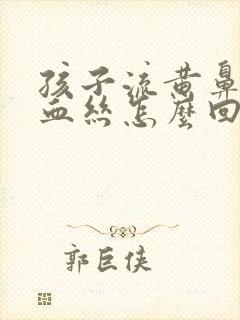 孩子流黄鼻
血丝怎麼回
郭巨侠